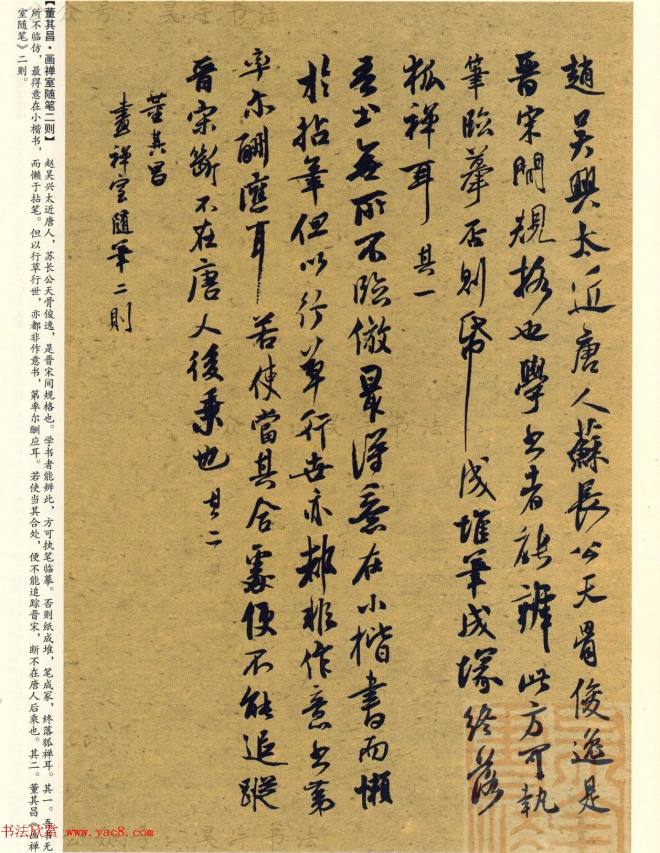 趙吳興太近唐人蘇長公天骨俊逸是
晉宋間規格也學書者能辨此方可執
筆臨摹否則紙成堆筆成塚終落
狐禅耳 其一
吾書無所不臨倣最得意在小楷書而懶
於拈筆但以行草行世亦都非作意書第
率尔酬應耳若使當其合處便不能追蹤
晉宋斷不在唐人後乗也 其二
董其昌
畫禅室随筆二則
【董其昌·画禅室随笔二则】 赵吴兴太近唐人，苏长公天骨俊逸，是晋宋间规格也。学书者能辨此，方可执笔临摹。否则纸成堆，笔成冢，终落狐禅耳。其一。吾书无
所不临仿，最得意在小楷书，而懒于拈笔。但以行草行世，亦都非作意书，第率尔酬应耳。若使当其合处，便不能追踪晋宋，断不在唐人后乘也。其二。董其昌《画禅
室随笔》二则。
书法欣赏 www.yac8.com